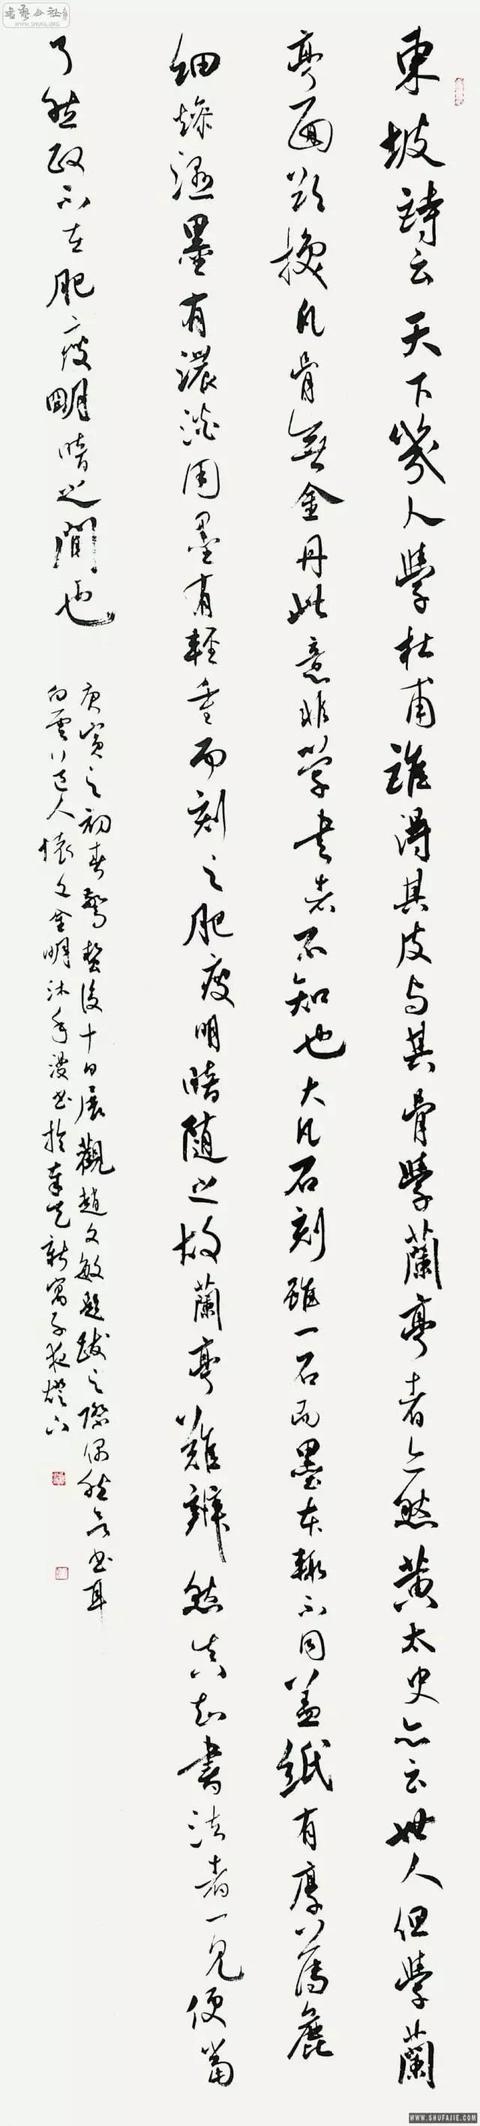 東坡詩云天下幾人學杜甫誰得其皮与其骨學蘭亭者亦然黄太史亦云世人但學蘭
亭面欲换凡骨無金丹此意非學書者不知也大凡石刻雖一石而墨本輒不同盖紙有厚薄麄
细燥濕墨有濃淡用墨有輕重而刻之肥瘦明暗随之故蘭亭難辨然真知書法者一見便當
了然政不在肥瘦明暗之間也
庚寅之初春驚蟄後十日展觀趙文敏題跋之際偶然臨書耳
白雲道人懷文金明沐手漫書於新寓子夜燈下
WWW.SHUFAJIE.COM